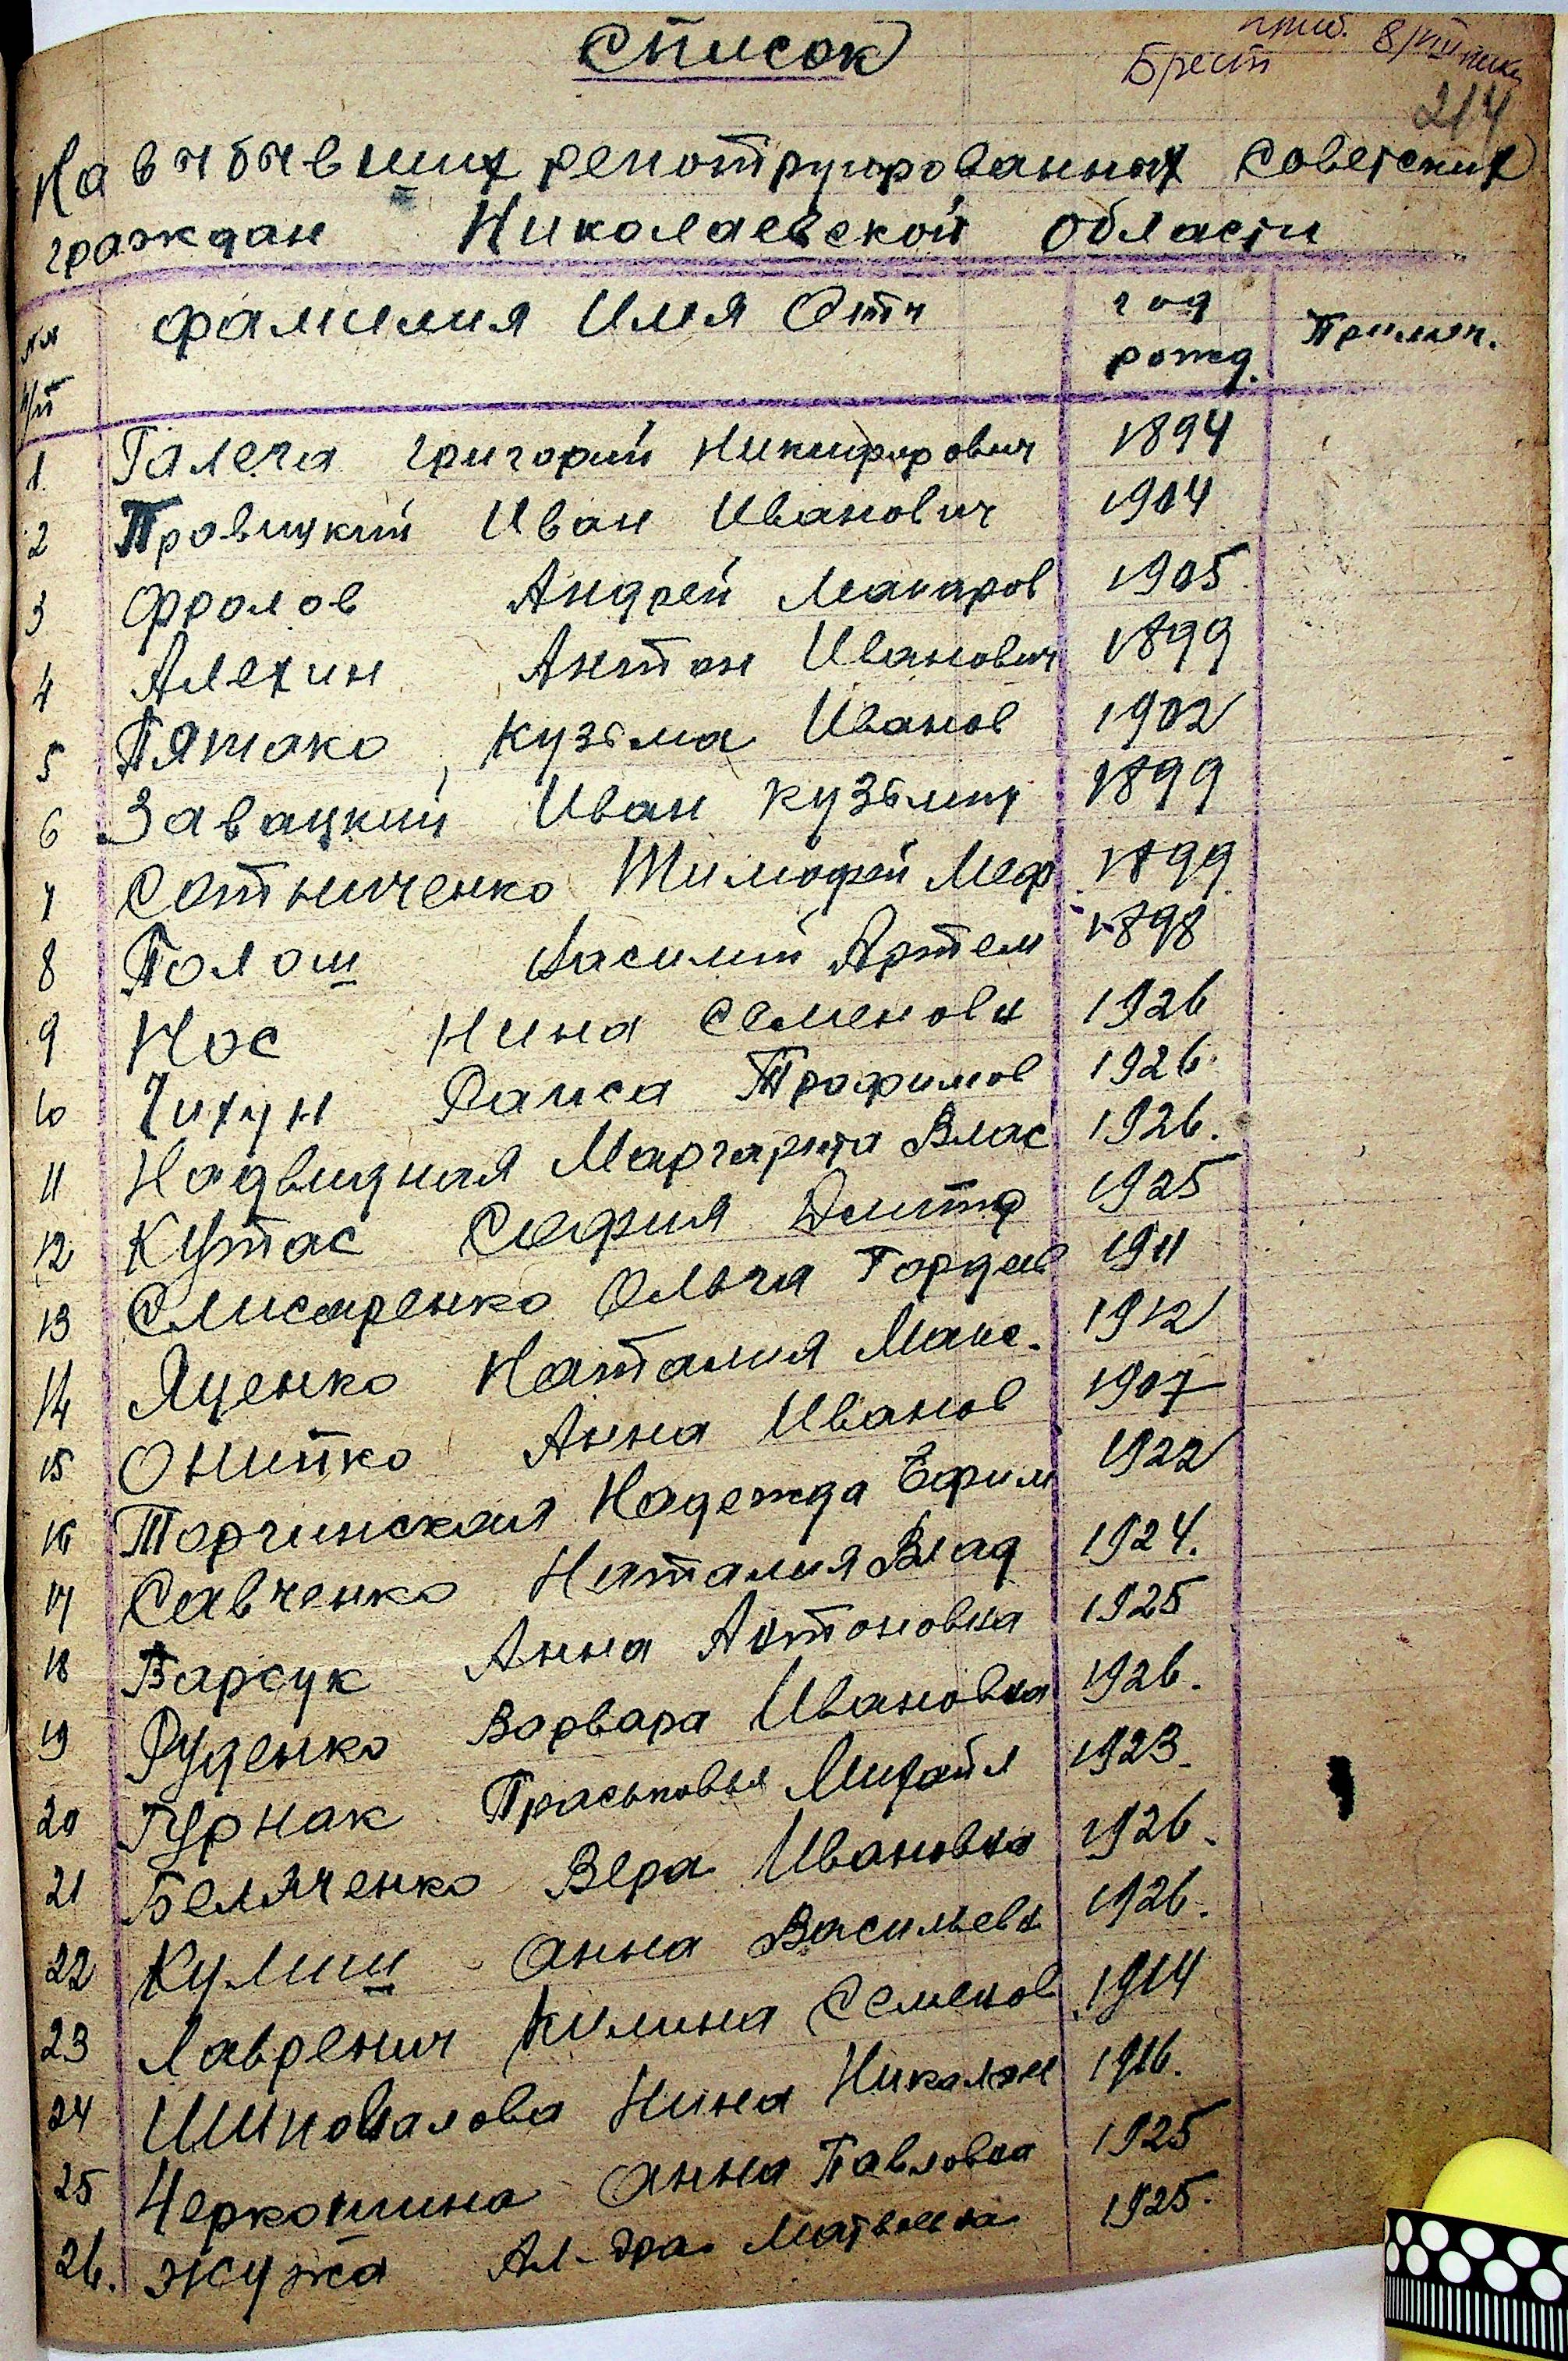 Список
приб. 8/VIII
Брест
214
На выбывших репотриированных советских
граждан Николаевской области
№№ п/п Фамилия Имя Отч год рожд. Примеч.
1 Галега Григорий Никифорович 1894
2 Правицкий Иван Иванович 1904
3 Фролов Андрей Макаров 1905
4 Алехин Антон Иванович 1899
5 Пятако Кузьма Иванов 1902
6 Завацкий Иван Кузьмич 1899
7 Сотниченко Тимофей Меф 1899
8 Полош Василий Артем 1898
9 Нос Нина Семеновн 1926
10 Чихун Раиса Трофимов 1926
11 Надвидная Маргарита Влас 1926.
12 Кутас София Дмитр 1925
13 Слисаренко Ольга Гордеев 1911
14 Яценко Наталия Макс. 1912
15 Онипко Анна Иванов 1907
16 Торчинская Надежда Ефим 1922
17 Савченко Наталия Влад 1924.
18 Барсук Анна Антоновна 1925
19 Руденко Варвара Ивановна 1926.
20 Гурнак Праськовья Михайл 1923.
21 Беляченко Вера Ивановна 1926.
22 Кулиш Анна Васильевн 1926.
23 Лавренич Килина Семенов 1914
24 Шиповалова Нина Николаен 1926.
25 Черкошина Анна Павловна 1925
26. Жужа Ал-дра Матвеевна 1925.